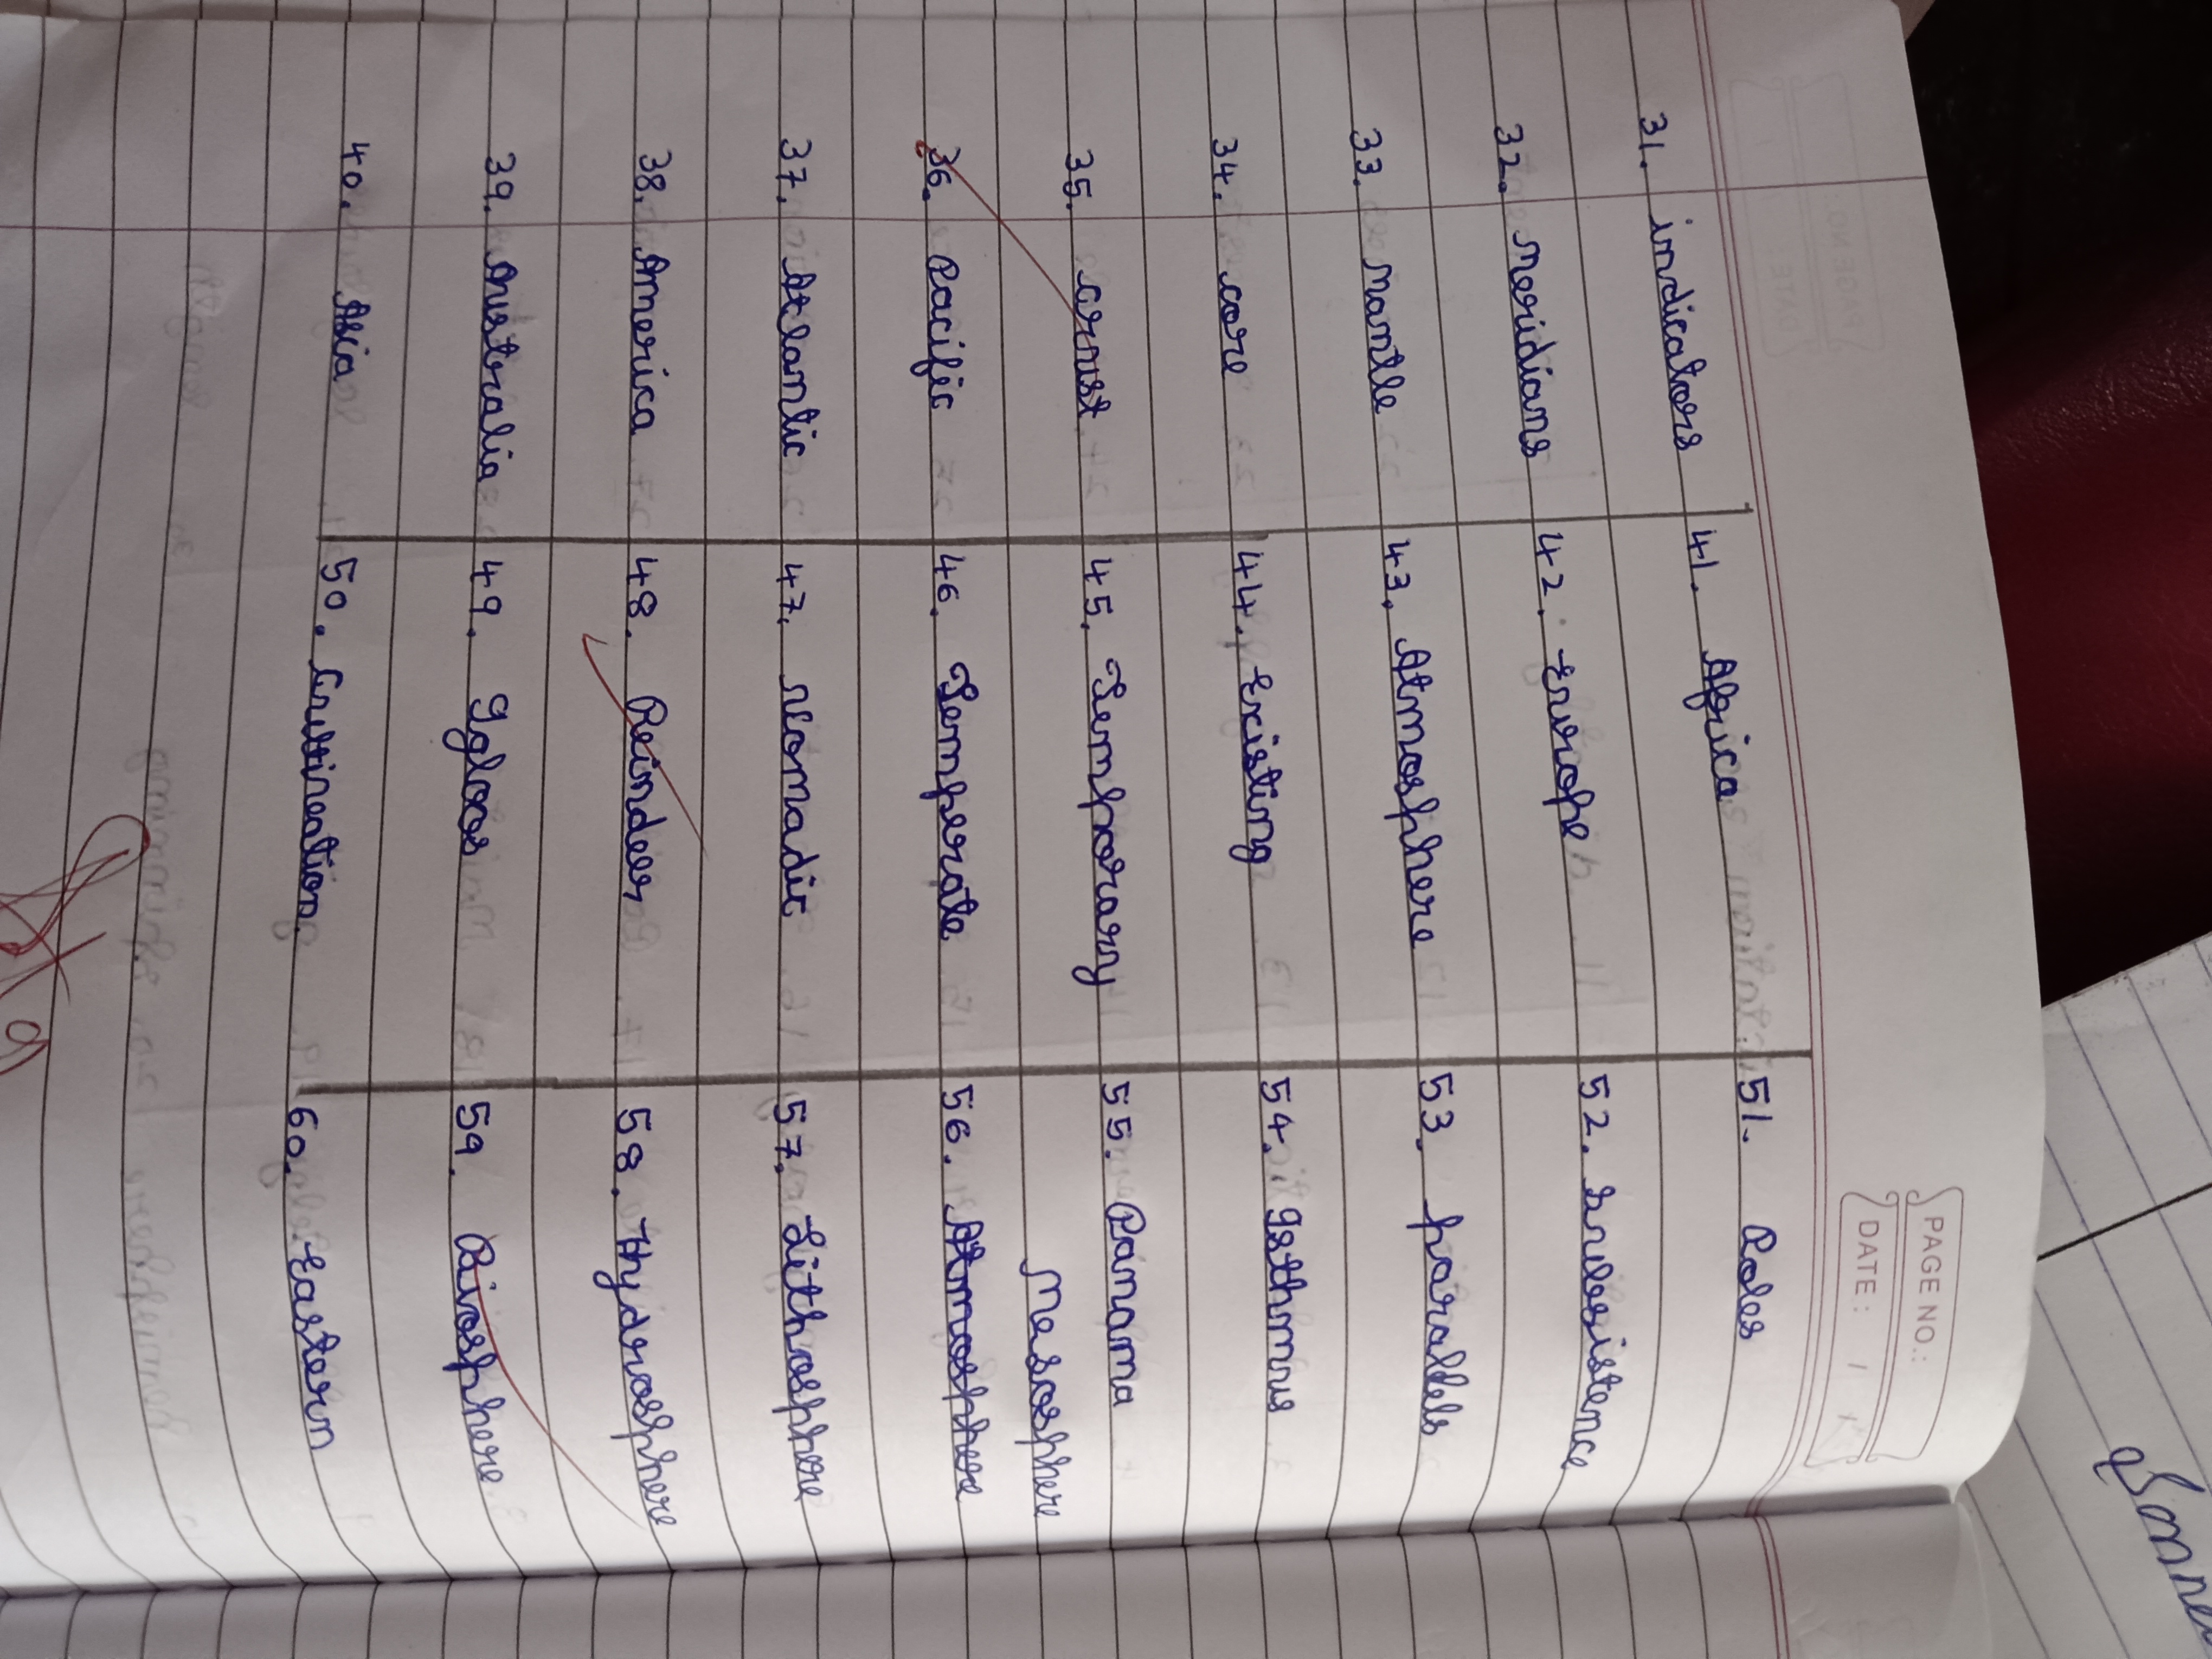 PAGE NO.:
DATE: / /
31. indicators 41. Africa 51. Poles
32. Meridians 42. Europe 52. Subsistence
33. Mantle 43. Atmosphere 53. parallels
34. core 44. Existing 54. Isthmus
35. crust 45. Temporary 55. Panama
Mesosphere
36. Pacific 46. Temperate 56. Atmosphere
37. Atlantic 47. Nomadic 57. Lithosphere
38. America 48. Reindeer 58. Hydrosphere
39. Australia 49. Igloos 59. Biosphere
40. Asia 50. 60. Eastern